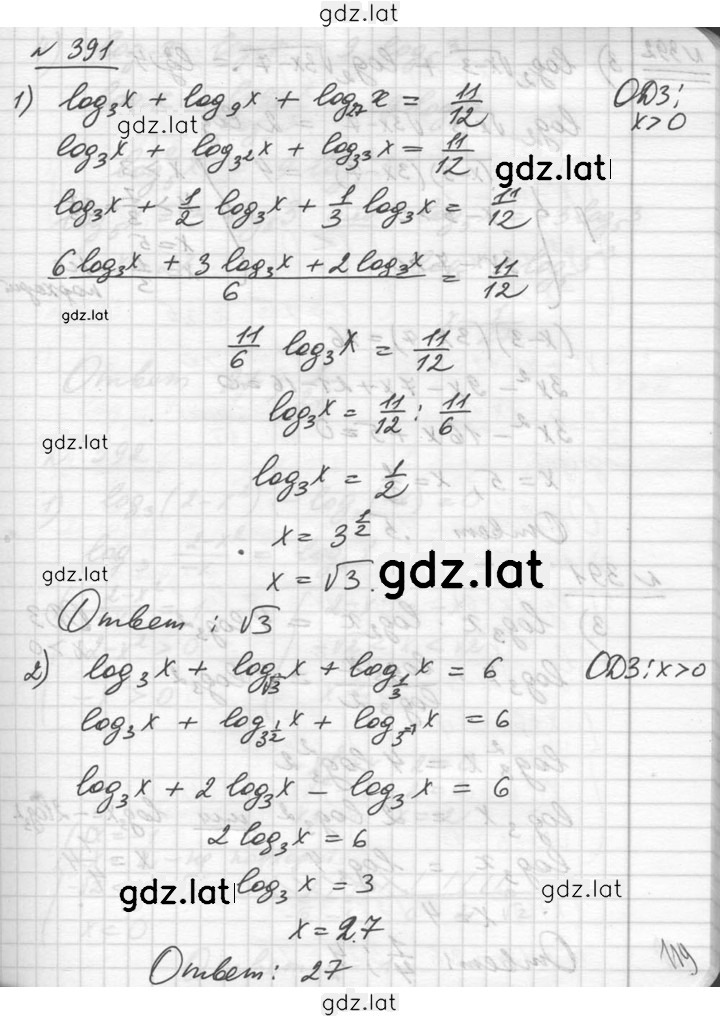 gdz.lat
№ 391
1) log₃x + log₉x + log₂₇x = 11/12 ОДЗ: x>0
gdz.lat
log₃x + log₃²x + log₃³x = 11/12
gdz.lat
log₃x + 1/2 log₃x + 1/3 log₃x = 11/12
(6 log₃x + 3 log₃x + 2 log₃x)/6 = 11/12
gdz.lat
11/6 log₃x = 11/12
log₃x = 11/12 : 11/6
gdz.lat
log₃x = 1/2
x = 3^(1/2)
gdz.lat
x = √3.
gdz.lat
Ответ : √3
2) log₃x + log_√3 x + log_(1/3) x = 6 ОДЗ: x>0
log₃x + log_(3^(1/2)) x + log_(3^(-1)) x = 6
log₃x + 2 log₃x − log₃x = 6
2 log₃x = 6
gdz.lat
log₃x = 3
gdz.lat
x = 27
Ответ: 27
119
gdz.lat